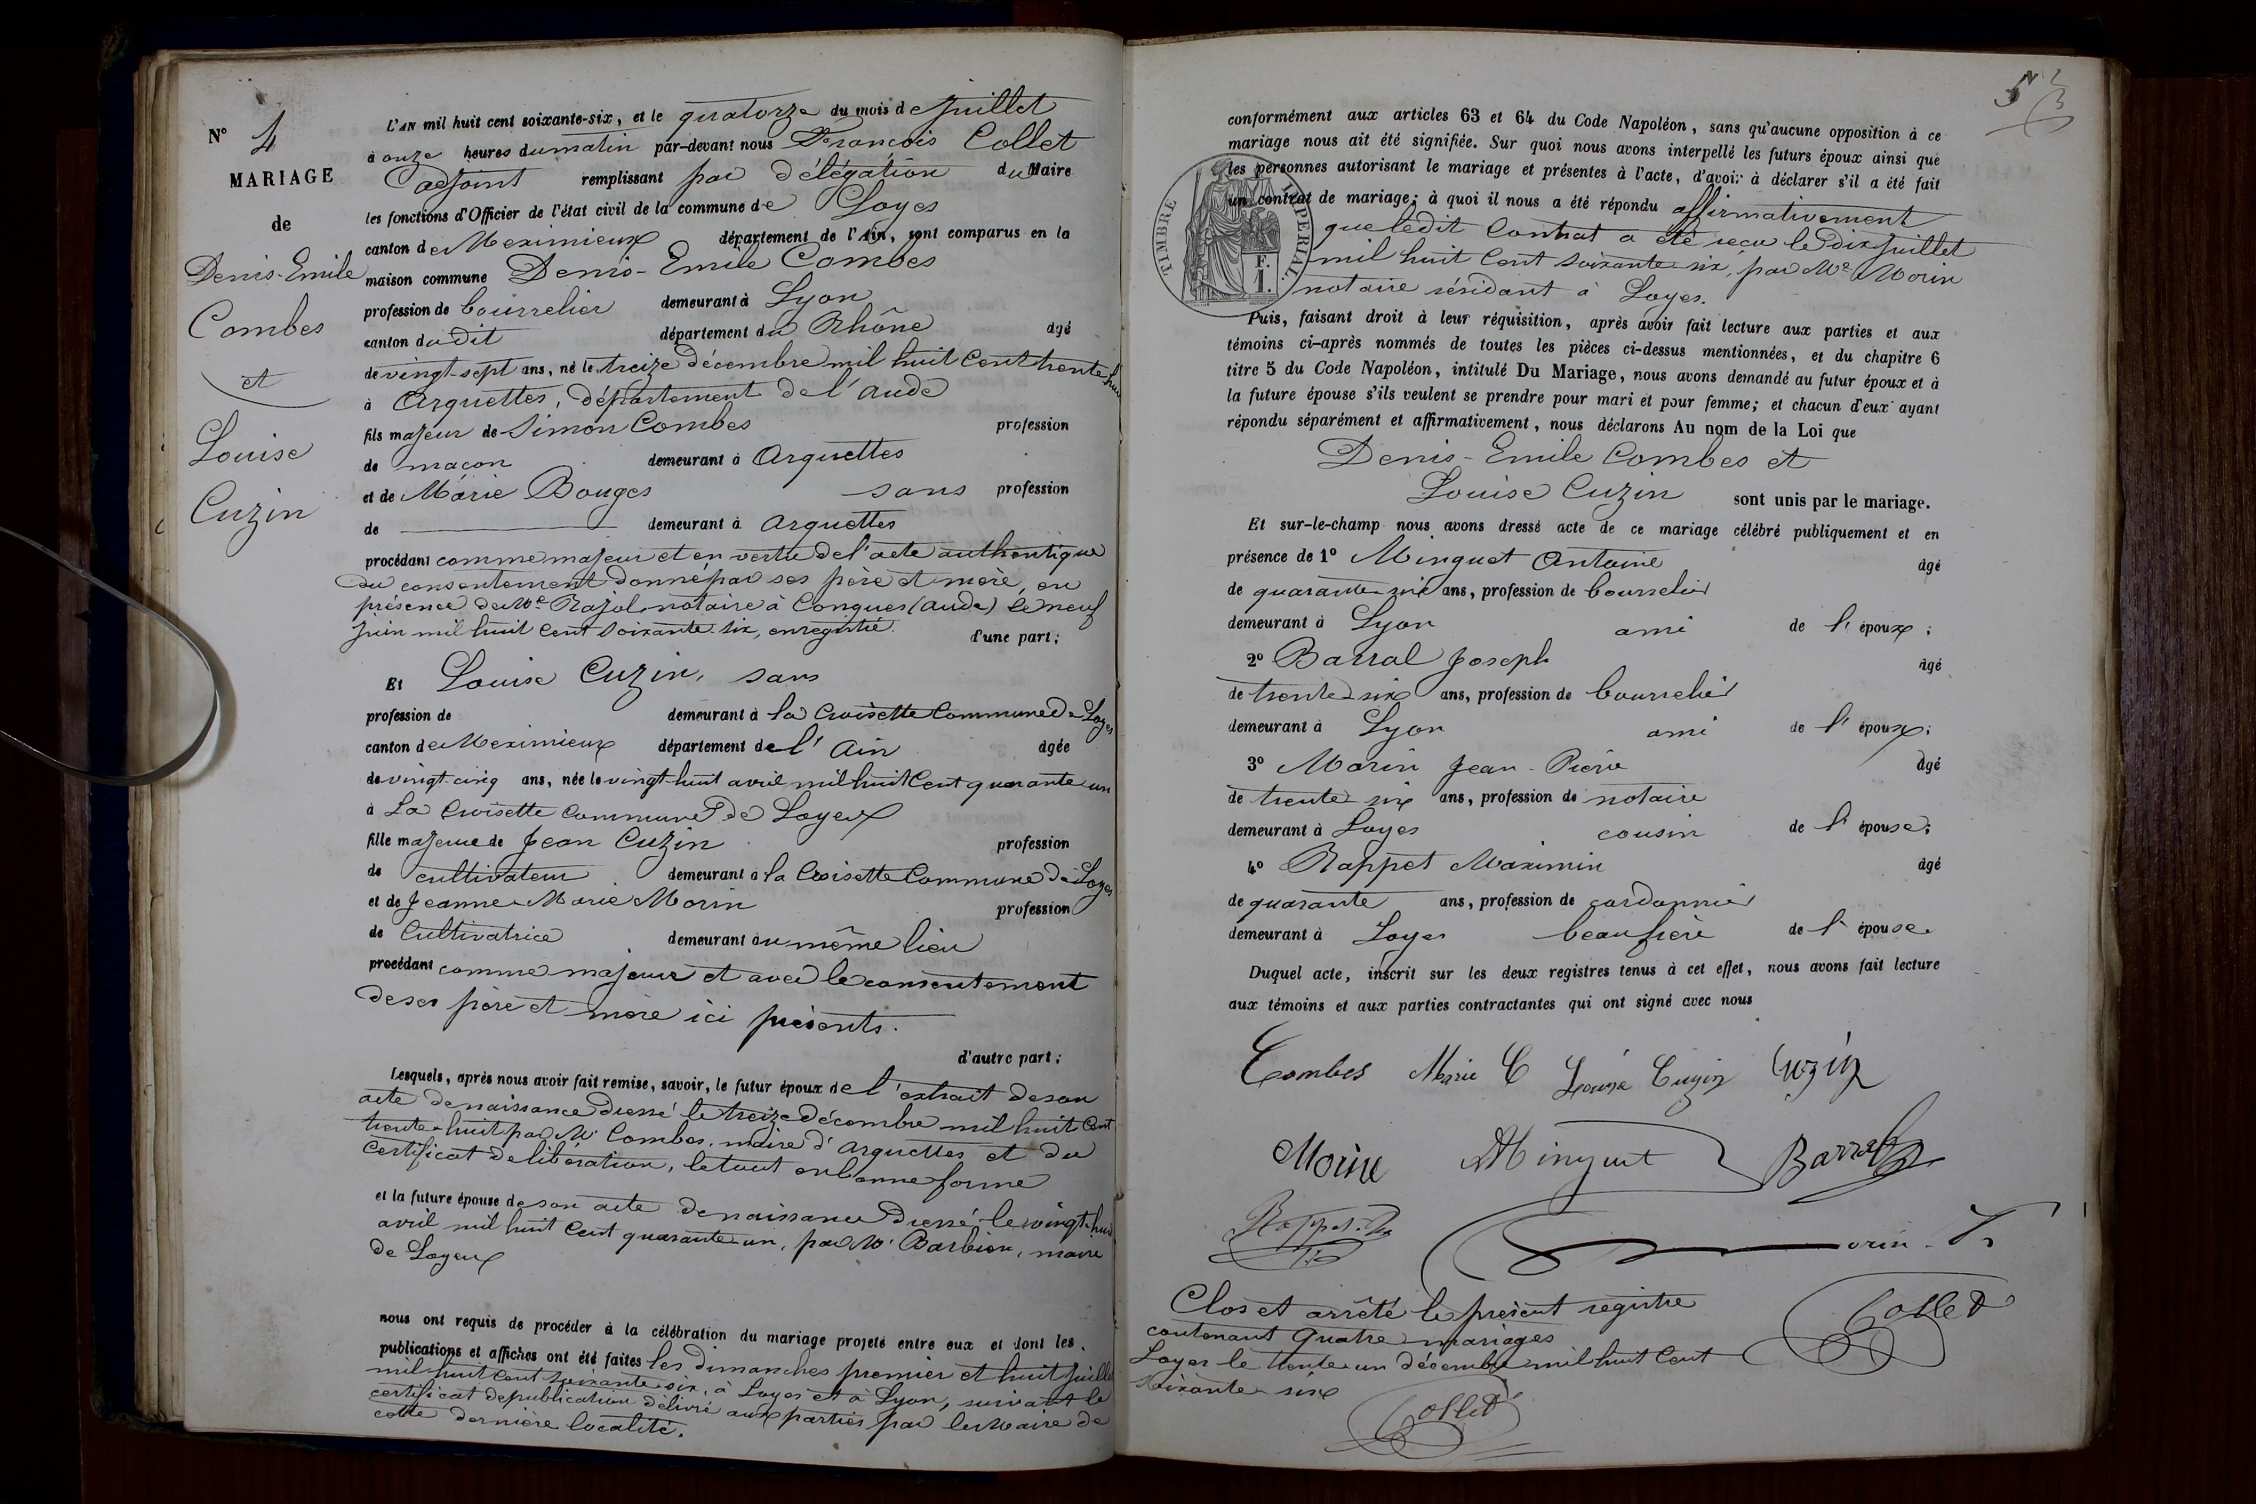 N° 4
MARIAGE
de
Denis-Emile
Combes
et
Louise
Cuzin
L'AN mil huit cent soixante-six, et le quatorze du mois de Juillet
à onze heures du matin par-devant nous François Collet
adjoint remplissant par délégation du Maire
les fonctions d'Officier de l'état civil de la commune de Loyes
canton de Meximieux département de l'Ain, sont comparus en la
maison commune Denis-Emile Combes
profession de bourrelier demeurant à Lyon
canton dudit département du Rhône âgé
de vingt-sept ans, né le treize décembre mil huit cent trente huit
à Arquettes, département de l'Aude
fils majeur de Simon Combes profession
de maçon demeurant à Arquettes
et de Marie Bouges sans profession
de demeurant à Arquettes
procédant comme majeur et en vertu de l'acte authentique
du consentement donné par ses père et mère, en
présence de Me Rajol notaire à Conques (Aude) le neuf
juin mil huit cent soixante six, enregistré. d'une part;
Et Louise Cuzin, sans
profession de demeurant à la Croisette Commune de Loyes
canton de Meximieux département de l'Ain âgée
de vingt-cinq ans, née le vingt-huit avril mil huit cent quarante un
à La Croisette commune de Loyeux
fille majeure de Jean Cuzin profession
de cultivateur demeurant à la Croisette Commune de Loyes
et de Jeanne-Marie Morin profession
de Cultivatrice demeurant au même lieu
procédant comme majeure et avec le consentement
de ses père et mère ici présents.
d'autre part;
Lesquels, après nous avoir fait remise, savoir, le futur époux de l'extrait de son
acte de naissance dressé le treize décembre mil huit cent
trente-huit par Mr Combes, maire d'Arquettes et du
certificat de libération, le tout en bonne forme
et la future épouse de son acte de naissance dressé le vingt-huit
avril mil huit cent quarante-un, par Mr Barbion, maire
de Loyeux
nous ont requis de procéder à la célébration du mariage projeté entre eux et dont les
publications et affiches ont été faites les dimanches premier et huit juillet
mil huit cent soixante six, à Loyes et à Lyon, suivant le
certificat de publication délivré aux parties par le Maire de
cette dernière localité.
conformément aux articles 63 et 64 du Code Napoléon, sans qu'aucune opposition à ce
mariage nous ait été signifiée. Sur quoi nous avons interpellé les futurs époux ainsi que
les personnes autorisant le mariage et présentes à l'acte, d'avoir à déclarer s'il a été fait
un contrat de mariage; à quoi il nous a été répondu affirmativement
que ledit contrat a été reçu le dix juillet
mil huit cent soixante-six, par Me Morin
notaire résidant à Loyes.
TIMBRE IMPERIAL.
F.
1.
Puis, faisant droit à leur réquisition, après avoir fait lecture aux parties et aux
témoins ci-après nommés de toutes les pièces ci-dessus mentionnées, et du chapitre 6
titre 5 du Code Napoléon, intitulé Du Mariage, nous avons demandé au futur époux et à
la future épouse s'ils veulent se prendre pour mari et pour femme; et chacun d'eux ayant
répondu séparément et affirmativement, nous déclarons Au nom de la Loi que
Denis-Emile Combes et
Louise Cuzin sont unis par le mariage.
Et sur-le-champ nous avons dressé acte de ce mariage célébré publiquement et en
présence de 1° Minguet Antoine âgé
de quarante-six ans, profession de bourrelier
demeurant à Lyon ami de l'époux;
2° Barral Joseph âgé
de trente-six ans, profession de bourrelier
demeurant à Lyon ami de l'époux;
3° Morin Jean-Pierre âgé
de trente-six ans, profession de notaire
demeurant à Loyes cousin de l'épouse;
4° Rappet Maximin âgé
de quarante ans, profession de cordonnier
demeurant à Loyes beaufrère de l'épouse.
Duquel acte, inscrit sur les deux registres tenus à cet effet, nous avons fait lecture
aux témoins et aux parties contractantes qui ont signé avec nous
Combes Marie C Louise Cuzin Cuzin
Morin AMinguet Barral
Rappet
Collet
Clos et arrêté le présent registre
contenant quatre mariages
Loyes le trente un décembre mil huit cent
soixante-six
Collet